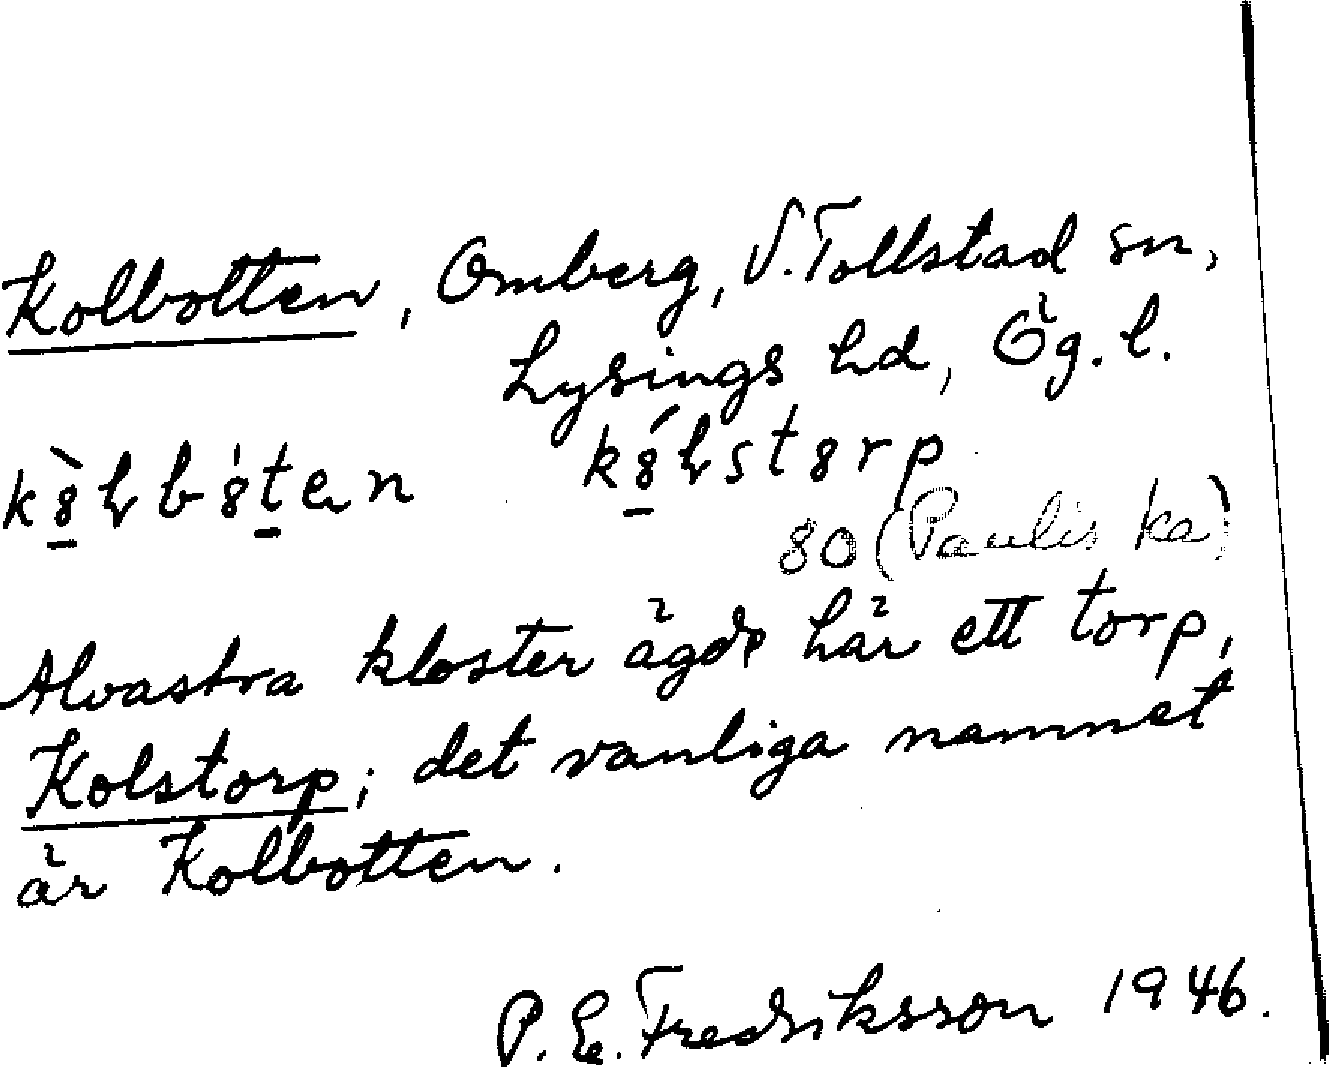 Kolbotten, Omberg, V. Tollstad sn,
Lysings hd, Ög. l.
80 (Paulis ka)
Alvastra kloster ägde här ett torp,
Kolstorp; det vanliga namnet
är Kolbotten.
P. E. Fredriksson 1946.